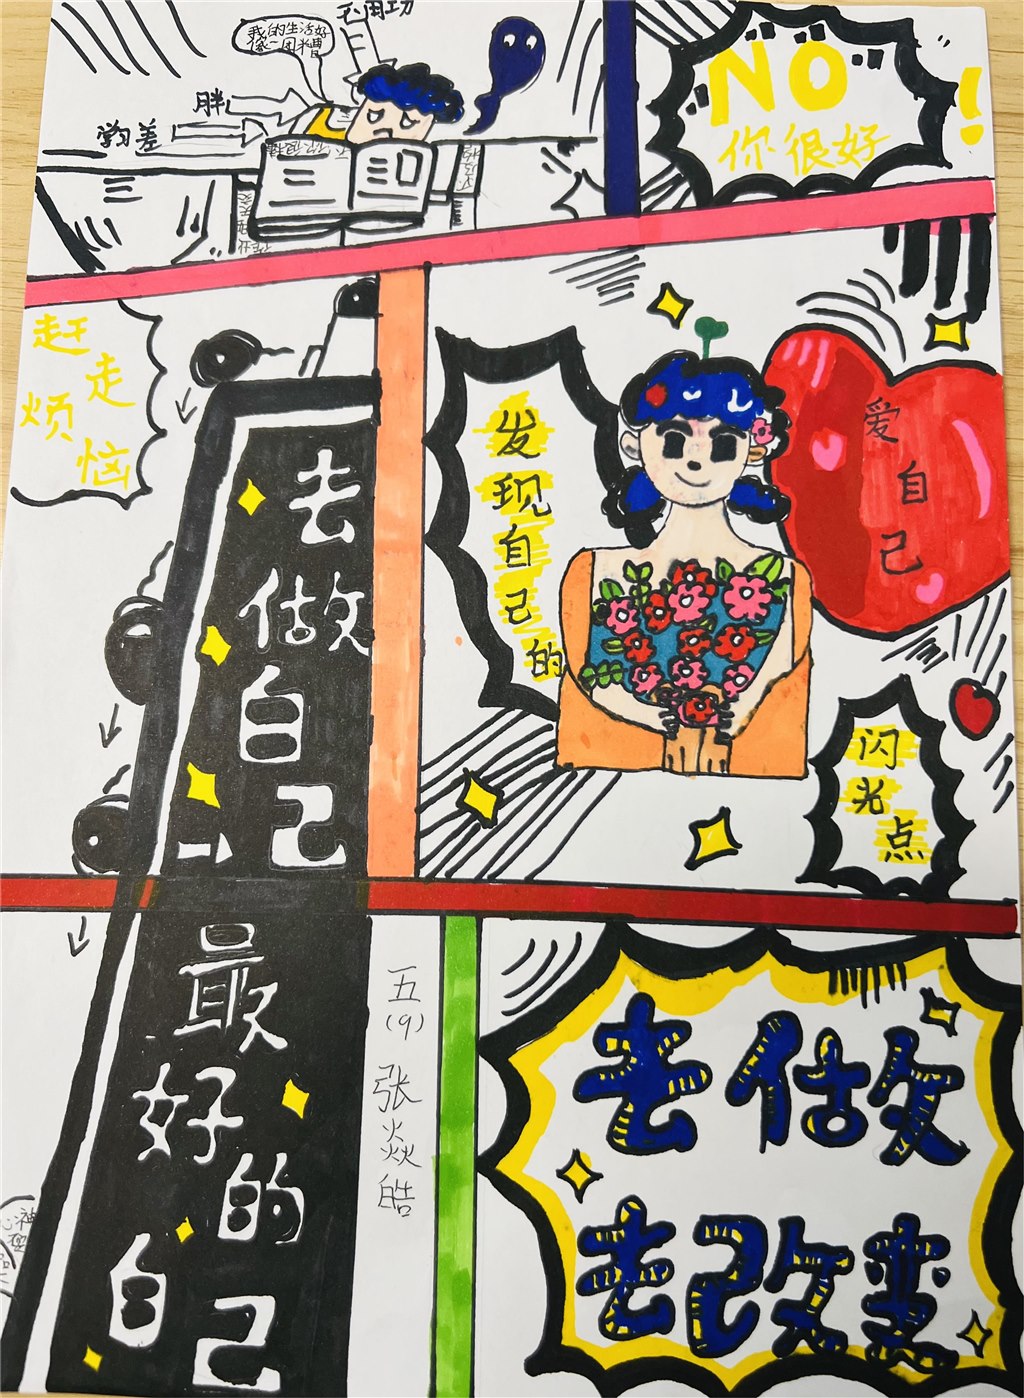 不用功
我的生活好
像一团糟
胖
学习差
NO
你很好
!
赶走
烦恼
发现自己的
爱自己
闪光点
去做自己
最好的自己
五(9) 张焱皓
去做
去改变